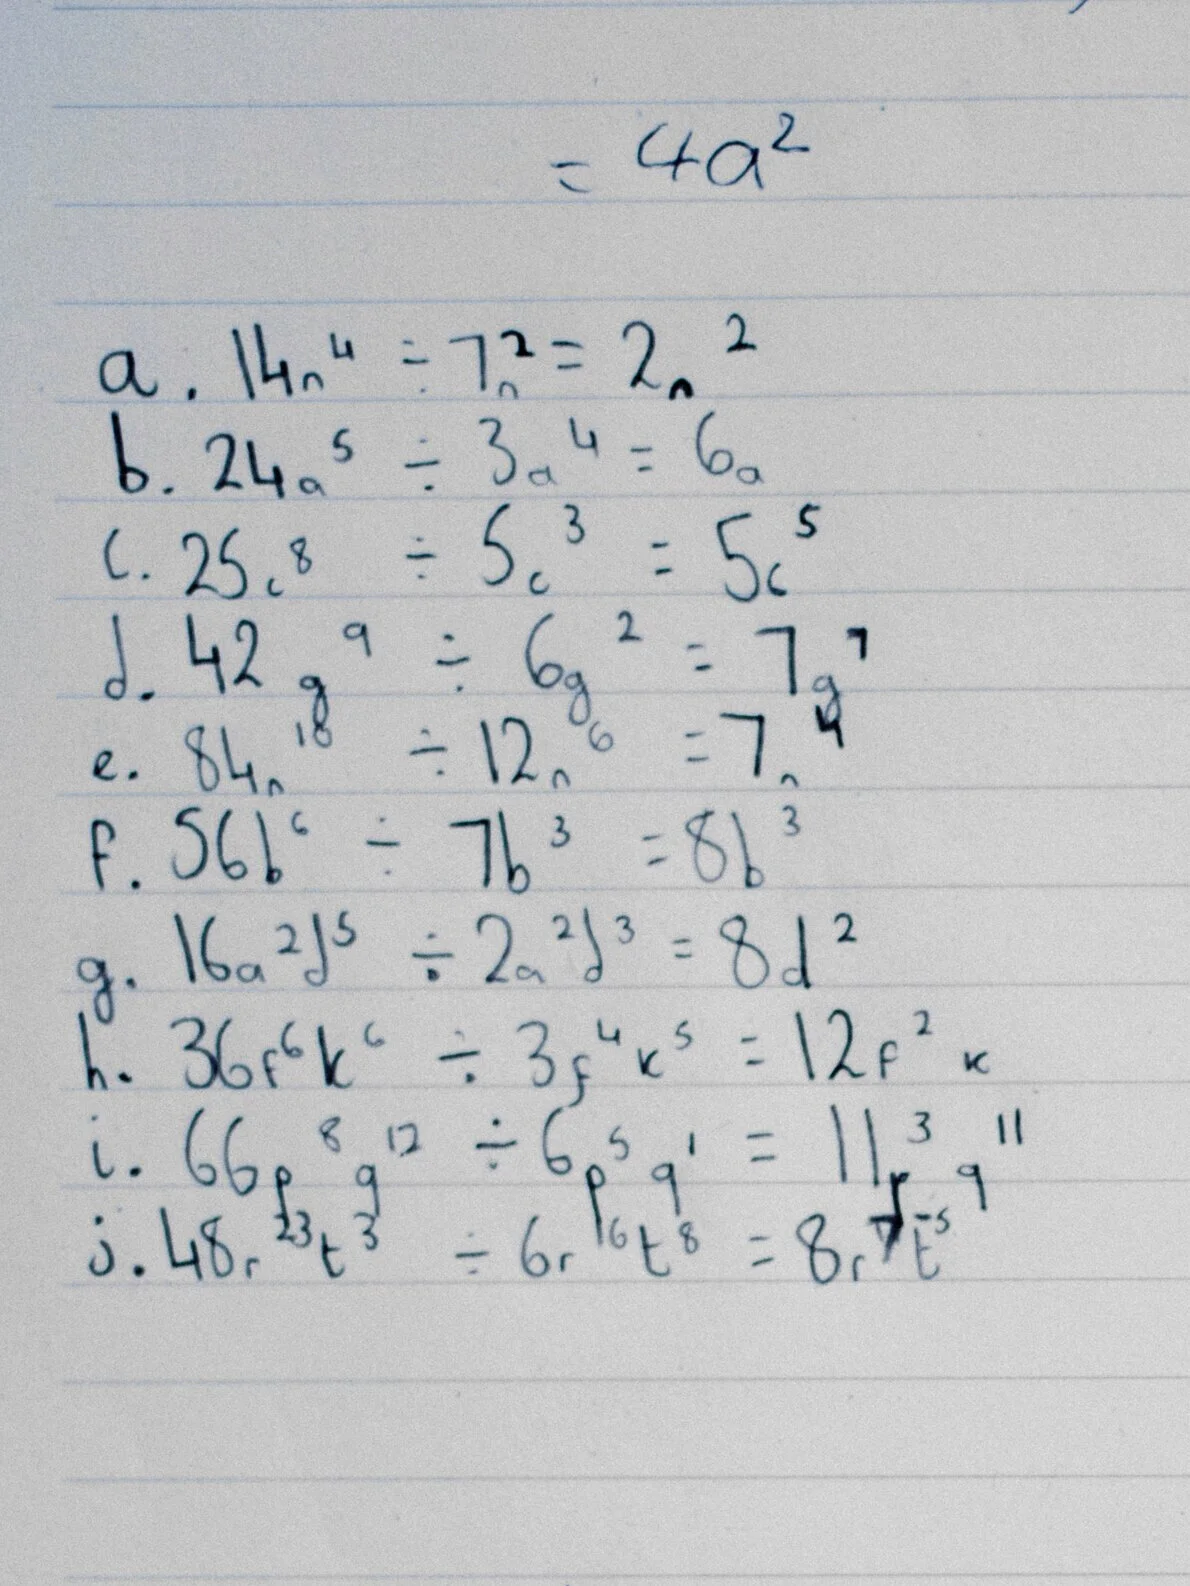 = 4a²
a. 14n⁴ ÷ 7n² = 2n²
b. 24a⁵ ÷ 3a⁴ = 6a
c. 25c⁸ ÷ 5c³ = 5c⁵
d. 42g⁹ ÷ 6g² = 7g⁷
e. 84n¹⁸ ÷ 12n⁶ = 7n⁴
f. 56b⁶ ÷ 7b³ = 8b³
g. 16a²d⁵ ÷ 2a²d³ = 8d²
h. 36f⁶k⁶ ÷ 3f⁴k⁵ = 12f²k
i. 66p⁸q¹² ÷ 6p⁵q¹ = 11p³q¹¹
j. 48r²³t³ ÷ 6r¹⁶t⁸ = 8r⁷t⁻⁵